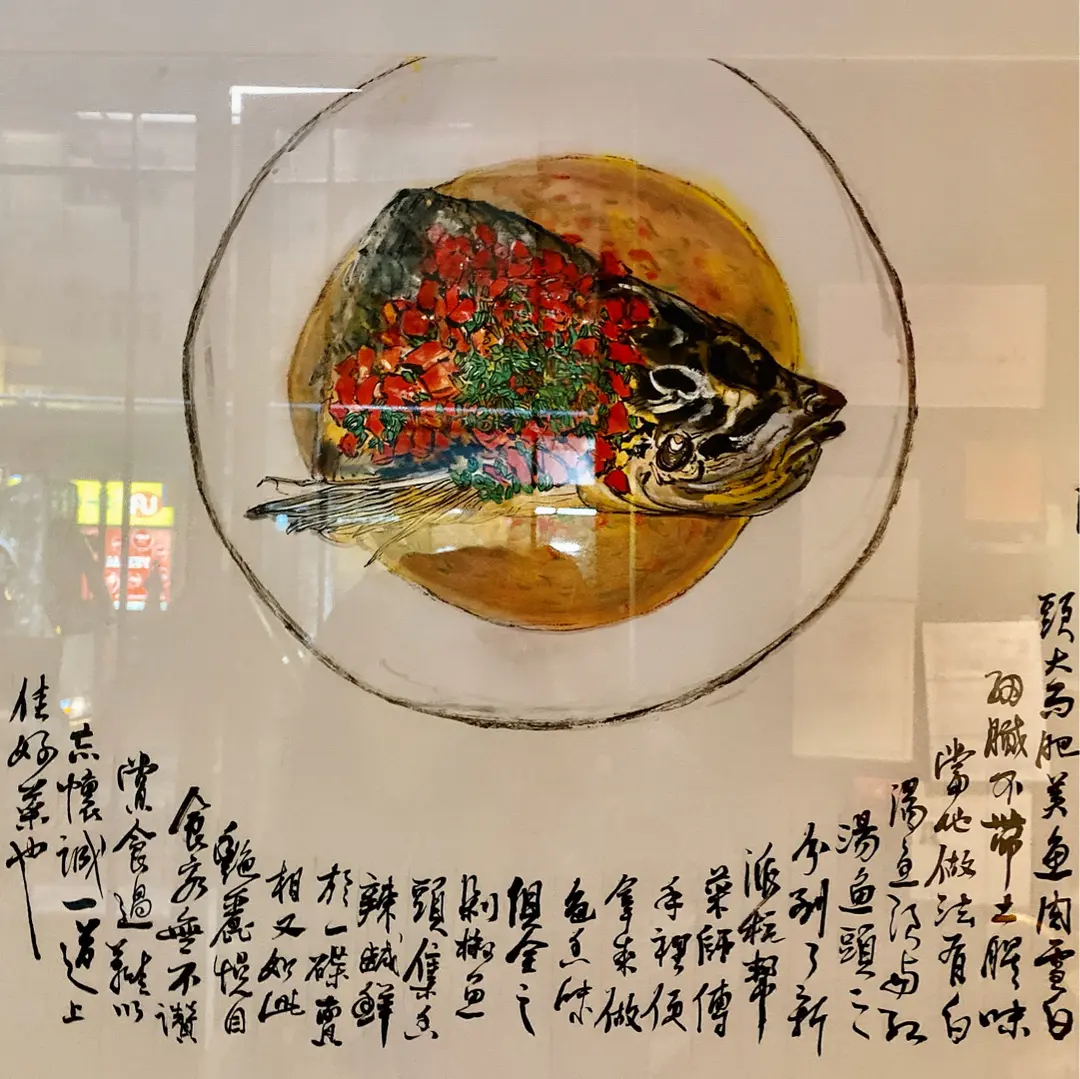 頭大而肥美魚肉雪白
細膩不帶土腥味
當地做法有白
湯魚頭与紅
湯魚頭之
分到了新
派杭幫
菜師傅
手裡便
拿來做
色香味
俱全之
剁椒魚
頭集香
辣鹹鮮
於一碟賣
相又如此
艷麗悦目
食客無不讚
賞食過難以
忘懷誠一道上
佳好菜也